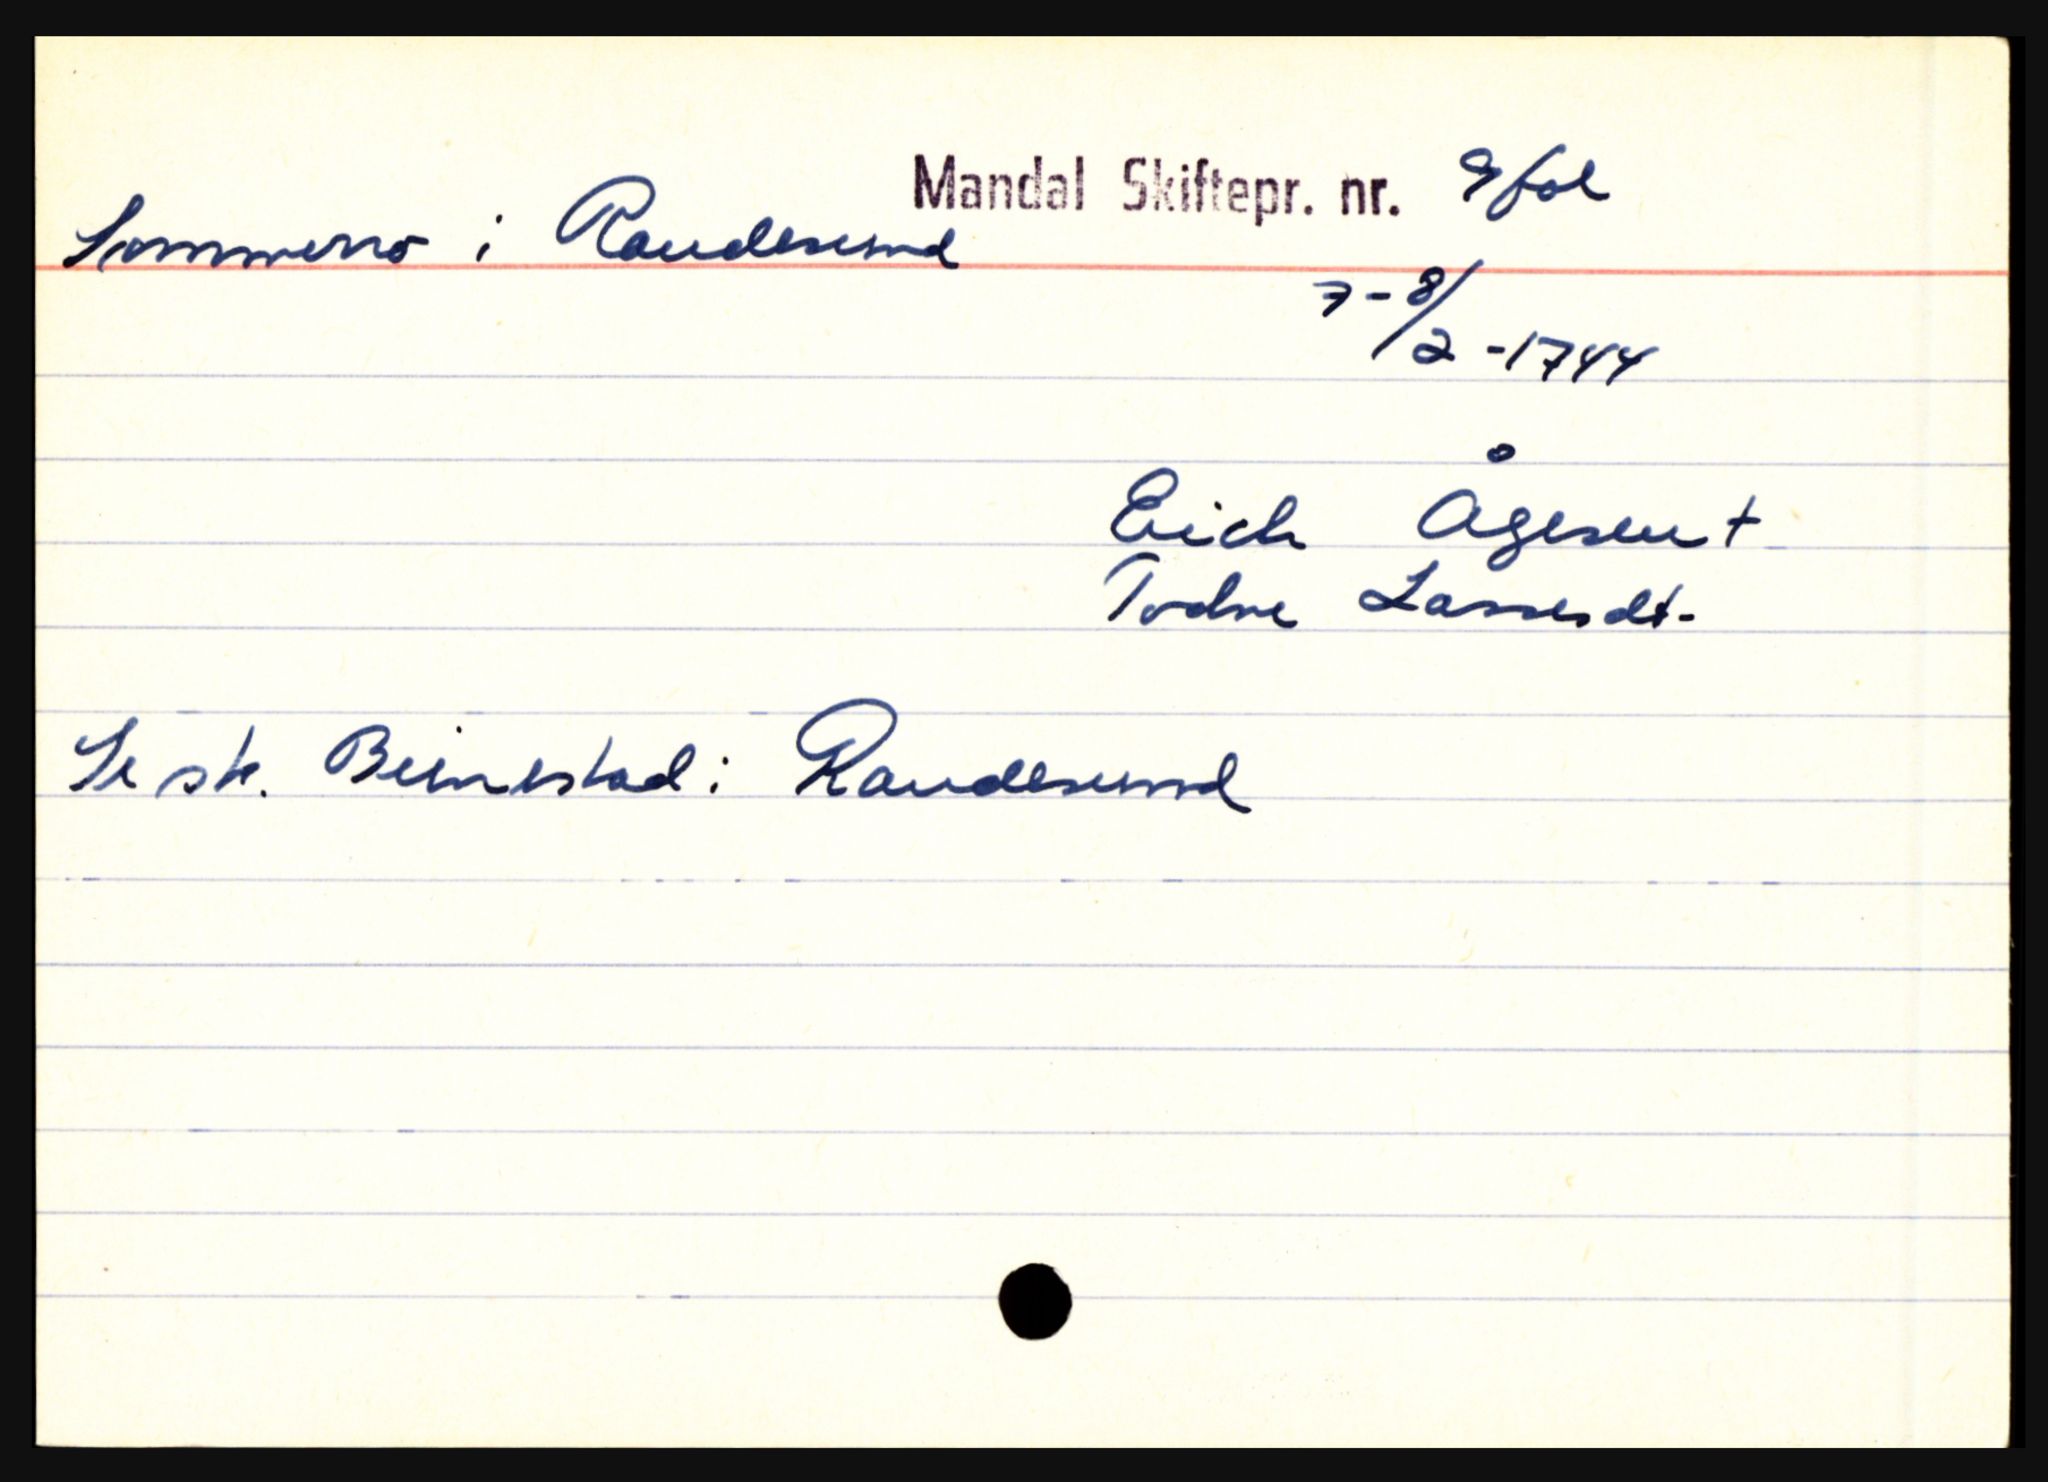 Mandal Skiftepr. nr. 9 fol
Sommerro i Randesund
7-8/2-1744
Erich Ågesen +
Todne Lassesdt-
Se sk. Beinestad i Randesund